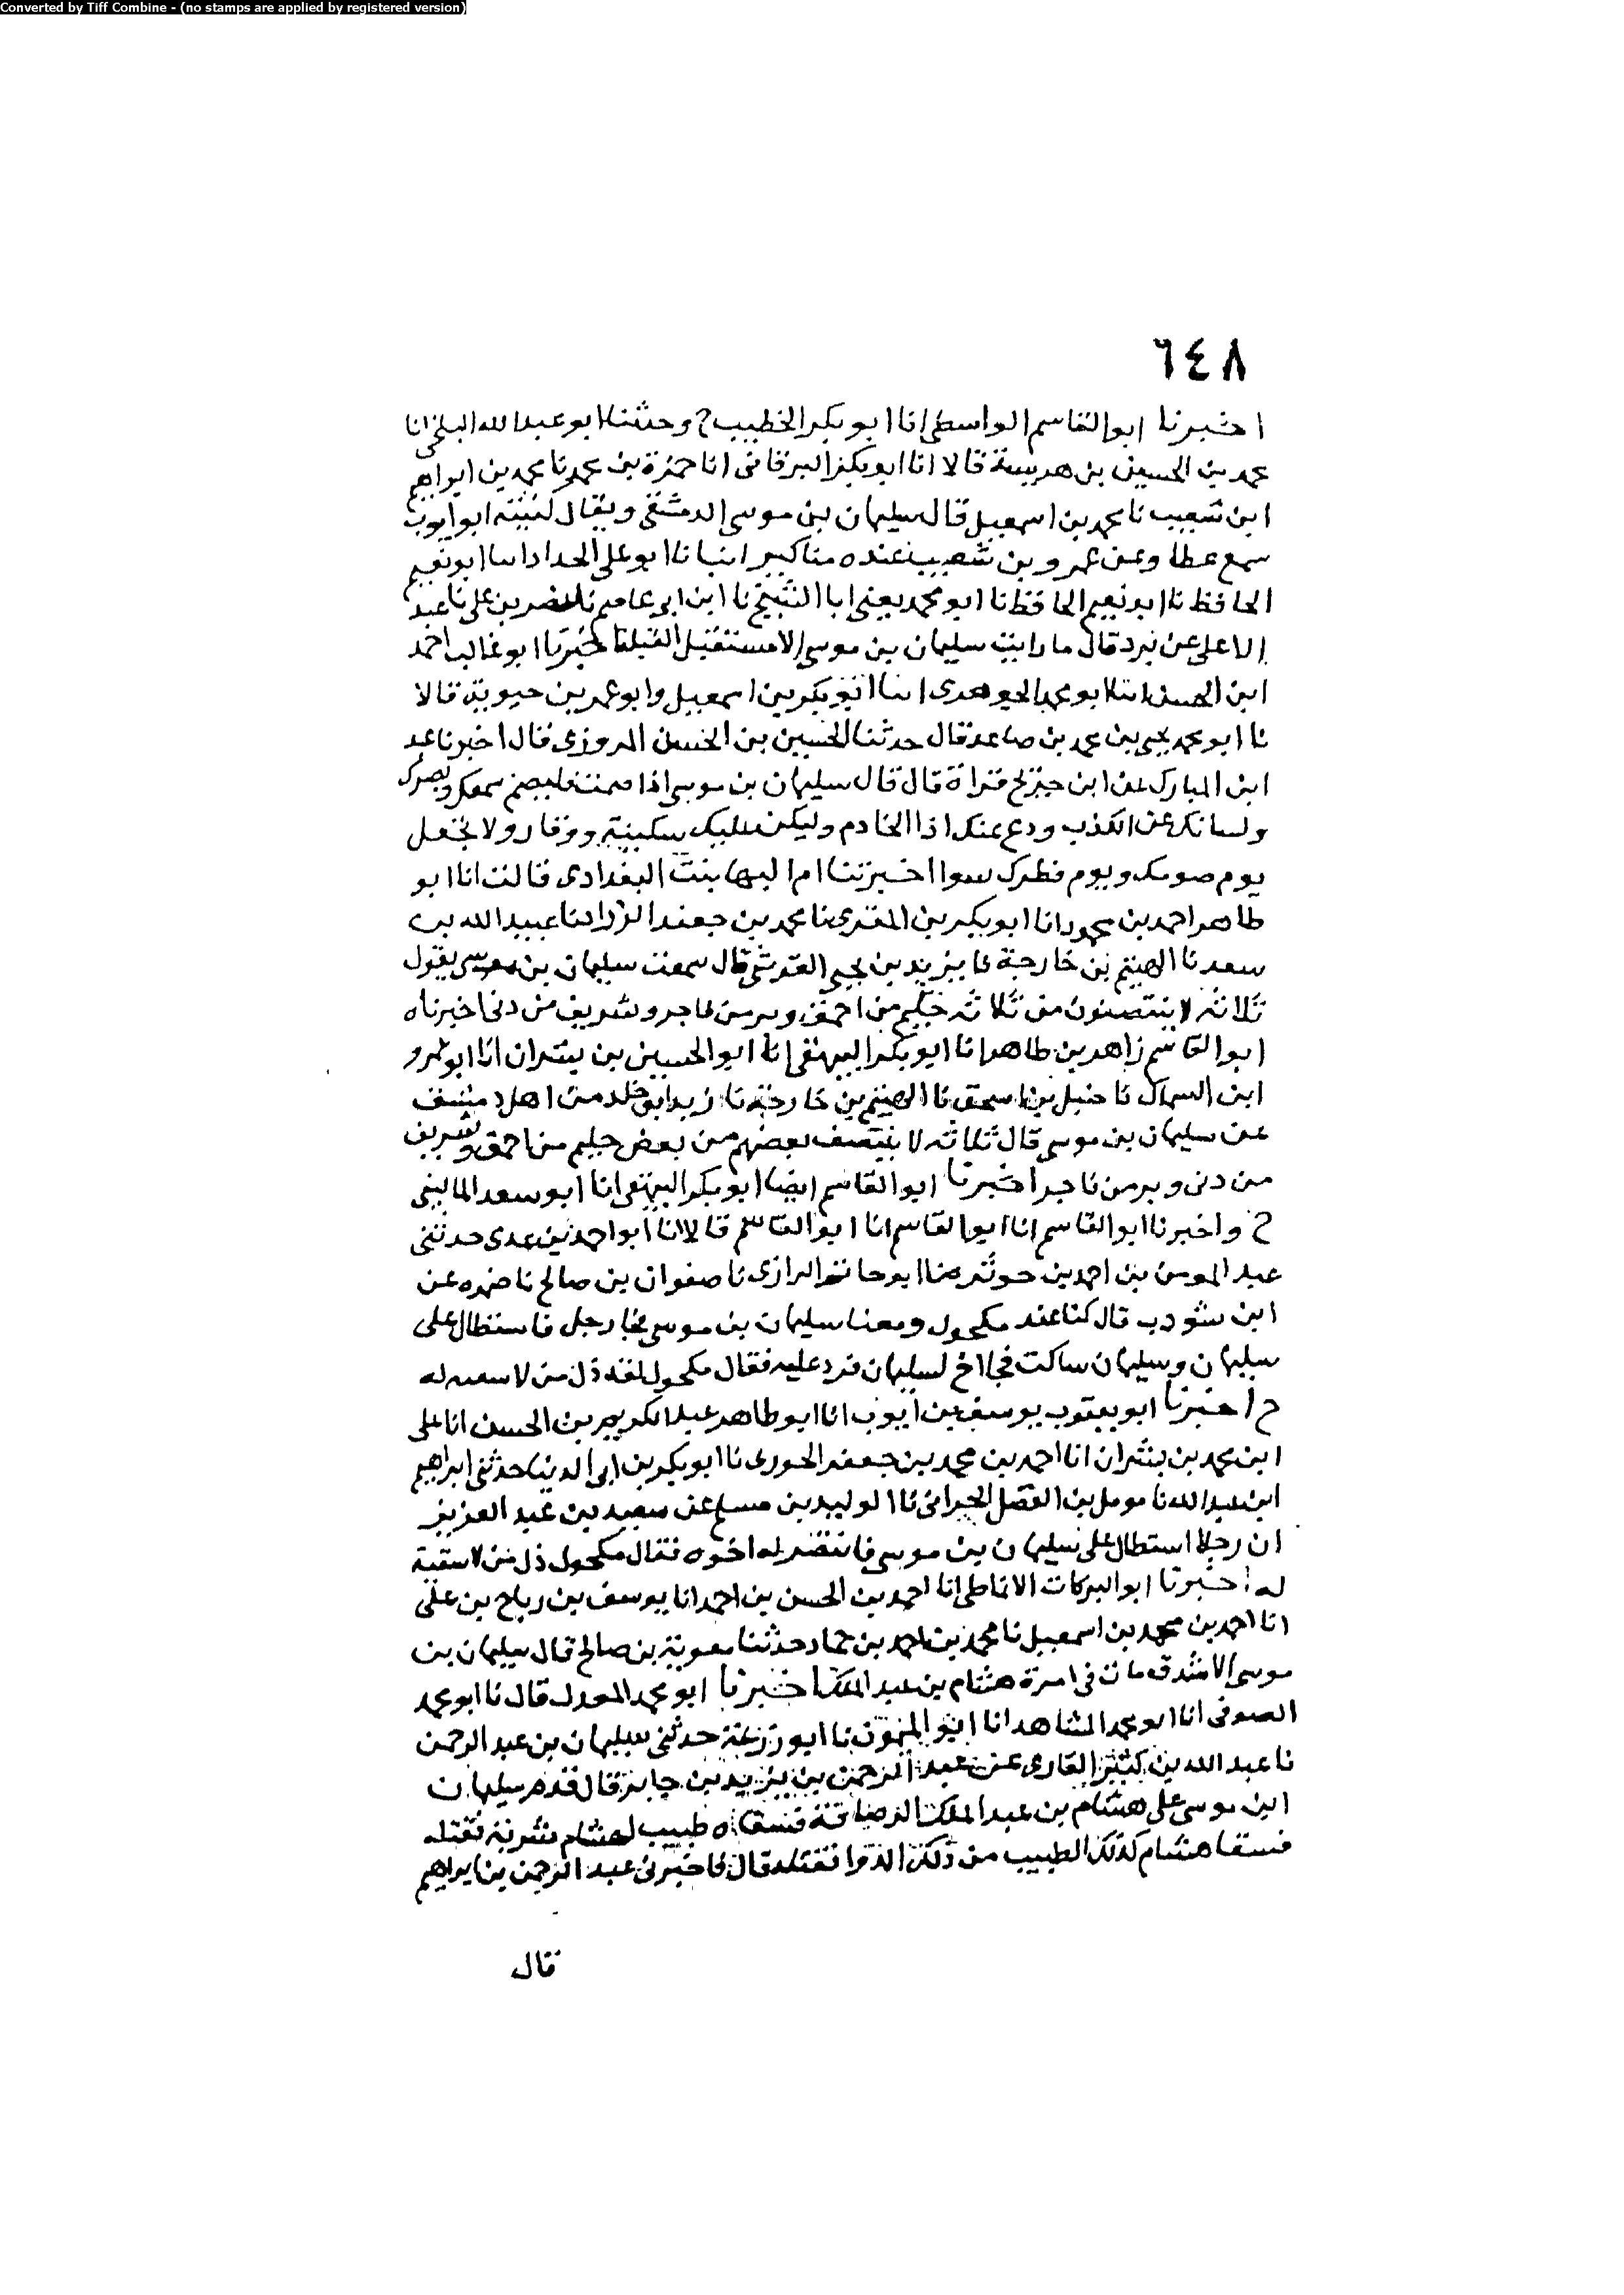 Converted by Tiff Combine - (no stamps are applied by registered version)
٦٤٨
اخبرنا ابو القاسم الواسطي انا ابو بكر الخطيب ح وحدثنا ابو عبد الله البلخي انا
محمد بن الحسين بن هريسة قالا انا ابو بكر البرقاني انا حمزة بن محمد نا محمد بن ابراهيم
ابن شعيب نا محمد بن اسمعيل قال سليمان بن موسى الدمشقي ويقال كنيته ابو ايوب
سمع عطا وعن عمرو بن شعيب عنده مناكير انبانا ابو علي الحداد انبا ابو نعيم
الحافظ نا ابو نعيم الحافظ نا ابو محمد يعني ابا الشيخ نا ابن ابي عاصم نا نصر بن علي نا عبد
الاعلى عن برد قال ما رايت سليمان بن موسى الا مستقبل القبلة اخبرنا ابو غالب احمد
ابن الحسن انبا ابو محمد الجوهري انبا ابو بكر بن اسمعيل وابو عمر بن حيوية قالا
نا ابو محمد يحيى بن محمد بن صاعد قال حدثنا الحسين بن الحسن المروزي قال اخبرنا عبد
ابن المبارك عن ابن جريح قراة قال قال سليمان بن موسى اذا صمت فليصم سمعك وبصرك
ولسانك عن الكذب ودع عنك اذا الخادم وليكن عليك سكينة ووقار ولا تجعل
يوم صومك ويوم فطرك سوا اخبرتنا ام البها بنت البغدادي قالت انا ابو
طاهر احمد بن محمود انا ابو بكر بن المقري نا محمد بن جعفر الزراد نا عبيد الله بن
سعد نا الهيثم بن خارجة نا يزيد بن يحيى القرشي قال سمعت سليمان بن موسى يقول
ثلاثة لا ينتصفون من ثلاثة حليم من احمق وبر من فاجر وشريف من دني اخبرناه
ابو القاسم زاهد بن طاهر انا ابو بكر البيهقي انا ابو الحسين بن بشران انا ابو عمرو
ابن السماك نا حنبل بن اسحق نا الهيثم بن خارجة نا زيد ابو خلد من اهل دمشق
عن سليمان بن موسى قال ثلاثة لا ينتصف بعضهم من بعض حليم من احمق وشريف
من دني وبر من فاجر اخبرنا ابو القاسم ايضا ابو بكر البيهقي انا ابو سعد الماليني
ح واخبرنا ابو القاسم انا ابو القاسم انا ابو القاسم قالا انا ابو احمد بن عدي حدثني
عبد المومن بن احمد بن حوثرة نا ابو حاتم الرازي نا صفوان بن صالح نا ضمره عن
ابن شوذب قال كنا عند مكحول ومعنا سليمان بن موسى فجا رجل فاستطال على
سليمان وسليمان ساكت فجا اخ لسليمان فرد عليه فقال مكحول لقد ذل من لا سفيه له
ح اخبرنا ابو يعقوب يوسف بن ايوب انا ابو طاهر عبد الكريم بن الحسن انا علي
ابن محمد بن بشران انا احمد بن محمد بن جعفر الجوزي نا ابو بكر بن ابي الدنيا حدثني ابراهيم
ابن عبد الله نا مومل بن الفضل الحراني نا الوليد بن مسلم عن سعيد بن عبد العزيز
ان رجلا استطال على سليمان بن موسى فانتصر له اخوه فقال مكحول ذل من لا سفيه
له اخبرنا ابو البركات الانماطي انا احمد بن الحسن بن احمد انا يوسف بن رباح بن علي
انا احمد بن محمد بن اسمعيل نا محمد بن احمد بن حماد حدثنا معوية بن صالح قال سليمان بن
موسى الاشدق مات في امرة هشام بن عبد الملك اخبرنا ابو محمد المعدل قال نا ابو محمد
الصوفي انا ابو محمد الشاهد انا ابو الميمون نا ابو زرعة حدثني سليمان بن عبد الرحمن
نا عبد الله بن كثير القاري عن عبد الرحمن بن يزيد بن جابر قال قدم سليمان
ابن موسى على هشام بن عبد الملك الرصافة فسقاه طبيب لهشام شربة فقتله
فسقا هشام كذلك الطبيب من ذلك الدوا فقتله قال فاخبرني عبد الرحمن بن ابراهيم
قال